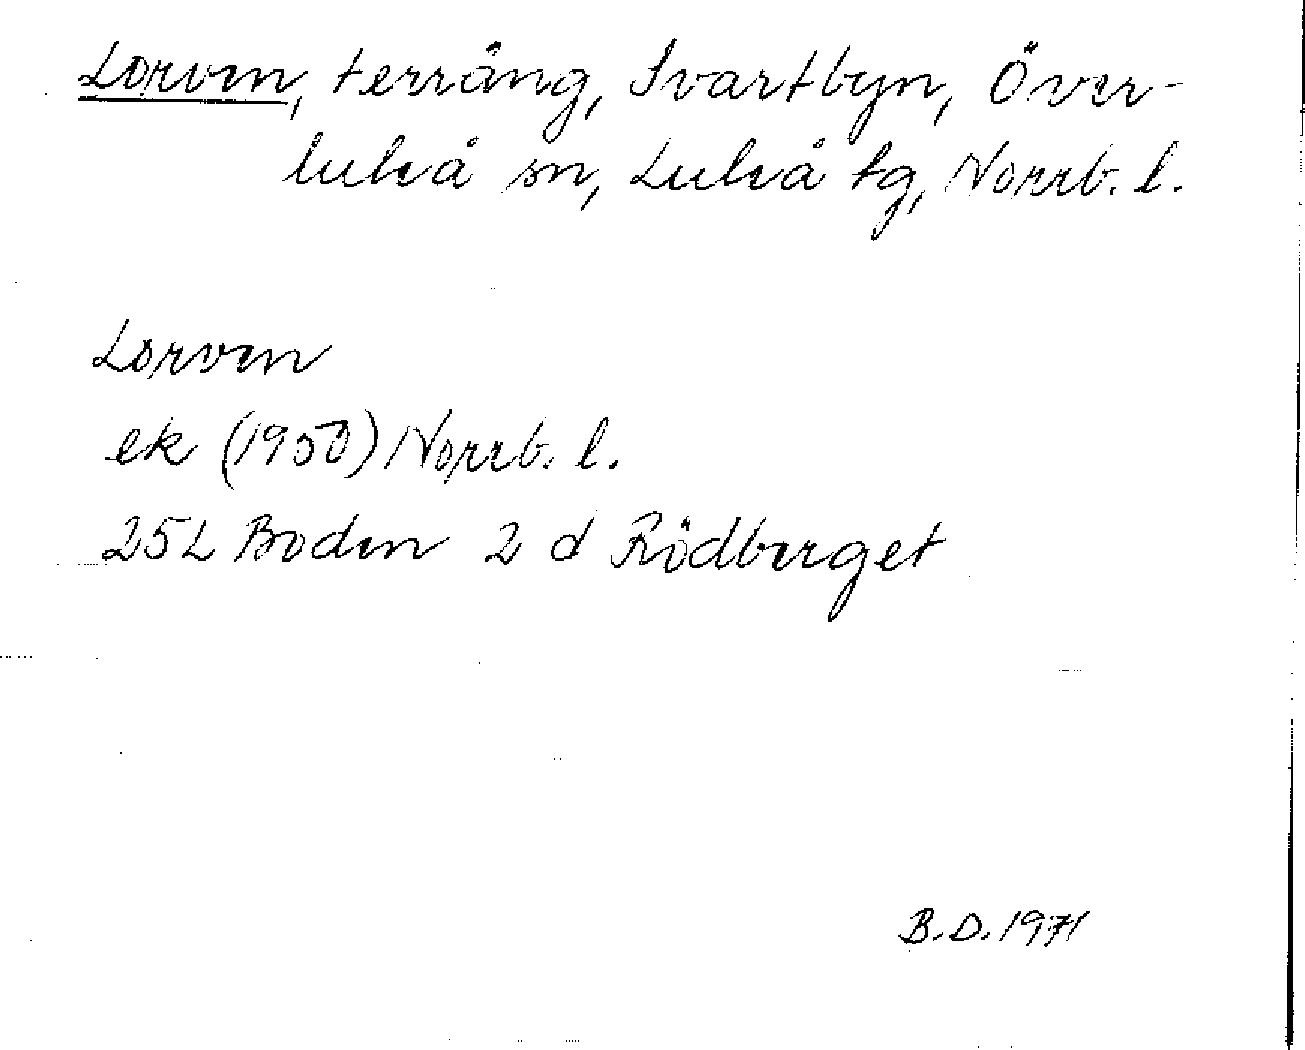 Lorven, terräng, Svartbyn, Över-
luleå sn, Luleå tg, Norrb. l.
Lorven
ek (1950) Norrb. l.
25L Boden 2 d Rödberget
B.D. 1971